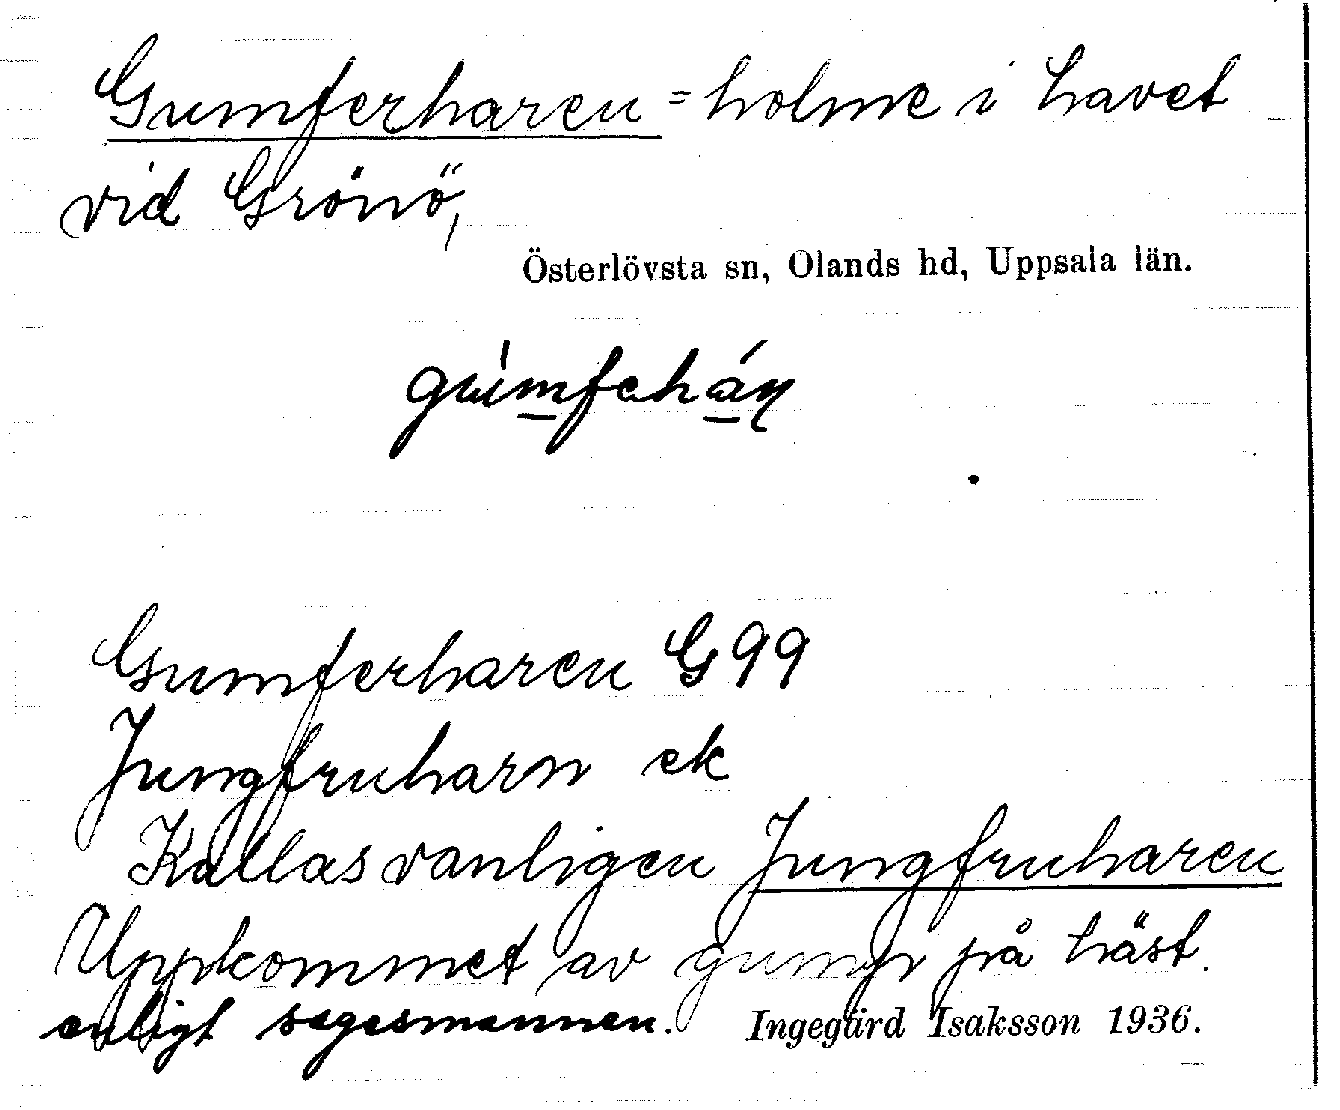 Gumferharen = holme i havet
vid Grönö,
Österlövsta sn, Olands hd, Uppsala län.
gúmfehán
Gumferharen G 99
Jungfruharn ek
Kallas vanligen Jungfruharen
Uppkommet av gump på häst.
enligt sagesmannen. Ingegärd Isaksson 1936.